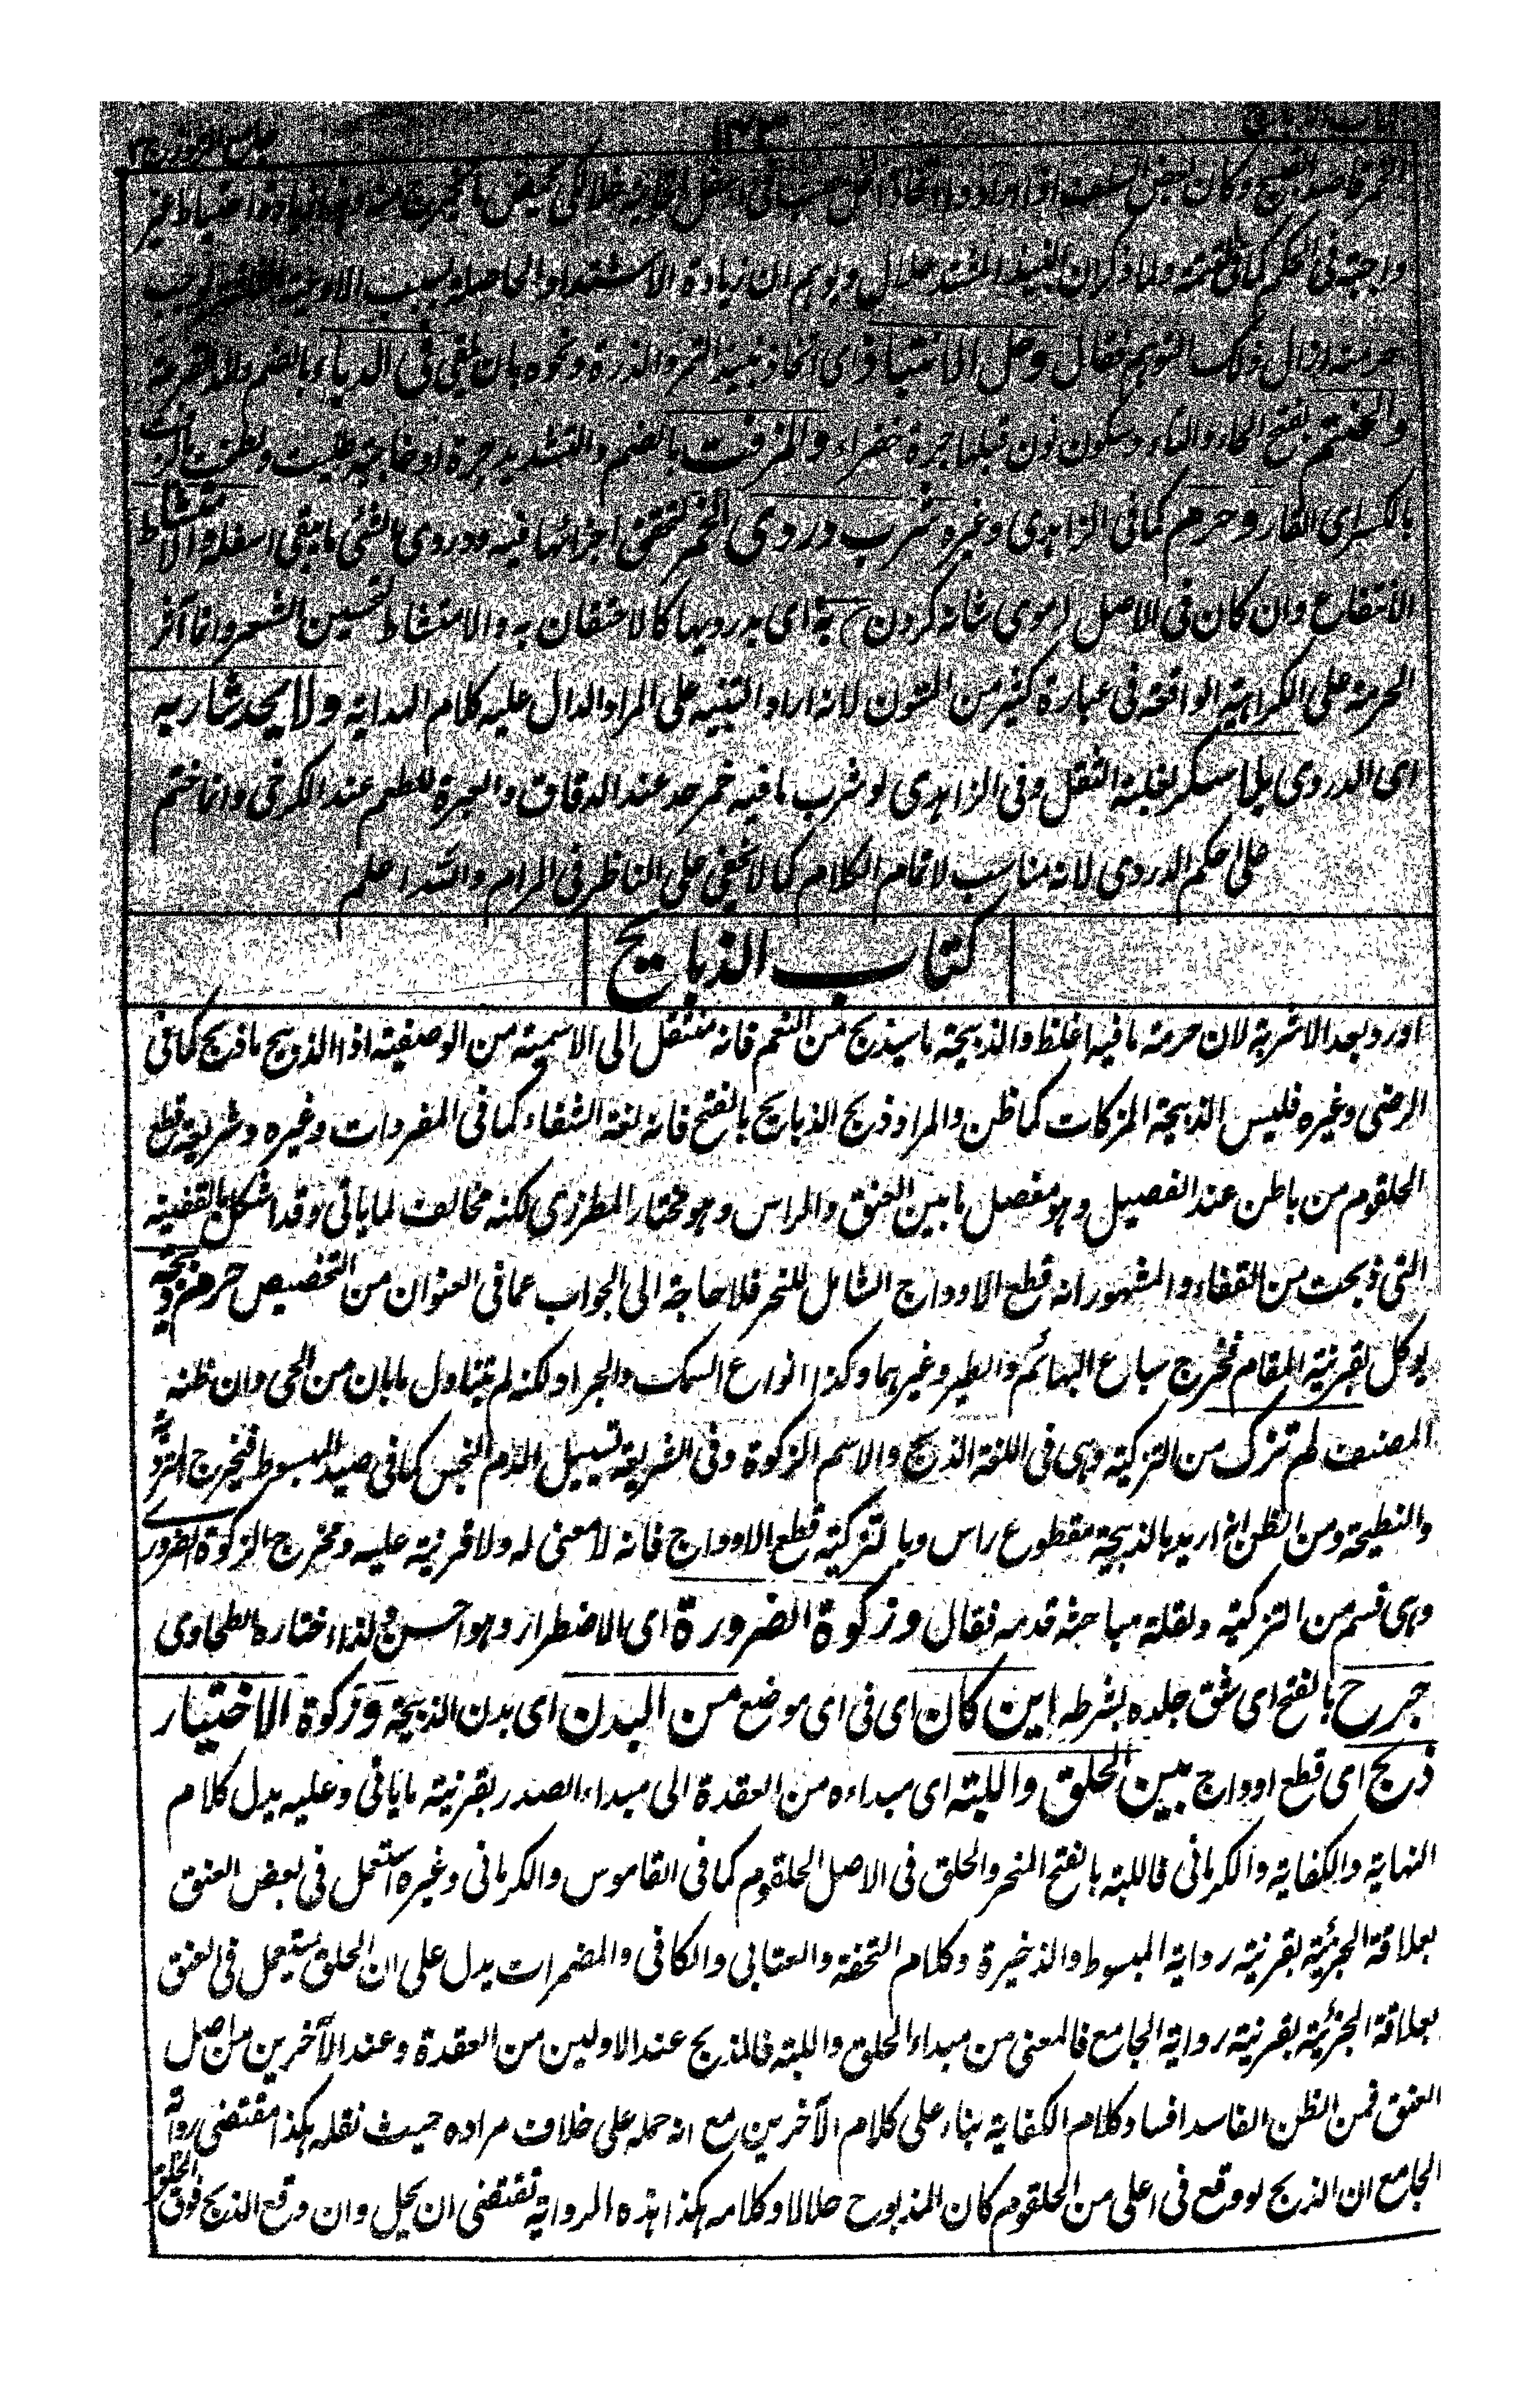 ١٣٣
واجبة فى الحكم كما فى التتمة ولما ذكر ان النبيذ المشتد حلال ويوهم ان زيادة الاشتداد الحاصلة بسبب الاوعية
حرمته ازال ذلك التوهم فقال وحل الانتباذ اى اتخاذ نبيذ التمر والذرة ونحوه بان يلقى فى الدباء بالضم والمد القرعة
والحنتم بفتح الحاء والتاء وسكون نون قبلها جرة خضراء والمزفت بالضم والتشديد جرة او خابية طليت ولطخت بالزفت
بالكسر اى القار وحرم كما فى الزاهدى وغيره شرب دردى الخمر لتحقق اجزائها فيه ودردى الشئ ما يبقى اسفله والامتشاط
الانتفاع وان كان فى الاصل موى شانه كردن به اى بدرديها كالاحتقان به والامتشاط لتحسين الشعر وانما آثر
الحرمة على الكراهية الواقعة فى عبارة كثير من المتون لانه اراد التنبيه على المراد الدال عليه كلام الهداية ولا يحد شاربه
اى الدردى بلا سكر لغلبة الثفل وفى الزاهدى لو شرب ما فيه خمر حد عند الدقاق والعبرة للطعم عند الكرخى وانما ختم
على حكم الدردى لانه مناسب لاتمام الكلام كما لا يخفى على الناظر فى المرام والله اعلم
كتاب الذبايح
اورد بعد الاشربة لان حرمة ما فيها اغلظ والذبيحة ما سيذبح من النعم فانه منتقل الى الاسمية من الوصفية اذ الذبيح ما ذبح كما فى
الرضى وغيره فليس الذبيحة المزكات كما ظن والمراد ذبح الذبايح بالفتح فانه لغة الشقاء كما فى المفردات وغيره وشريعة قطع
الحلقوم من باطن عند الفصيل وهو مفصل ما بين العنق والراس وهو مختار المطرزى لكنه مخالف لما ياتى وقد اشكل بالقفينة
التى ذبحت من القفاء والمشهور انه قطع الاوداج الشامل للنحر فلا حاجة الى الجواب عما فى العنوان من التخصيص حرم ذبيحة
يوكل بقرينة المقام فخرج سباع البهائم والطير وغيرهما وكذا انواع السمك والجراد لكنه لم يتناول ما بان من الحى وان ظنه
المصنف لم تزك من التزكية وهى فى اللغة الذبح والاسم الزكوة وفى الشريعة تسييل الدم النجس كما فى صيد المبسوط فيخرج المتردية
والنطيحة ومن الظن انه اريد بالذبيحة مقطوع راس وبالتزكية قطع الاوداج فانه لا معنى له ولا قرينة عليه وتخرج الزكوة الضرورى
وهى قسم من التزكية ولقلة مباحثه قدمه فقال وزكوة الضرورة اى الاضطرار وهو احسن ولذا اختاره الطحاوى
جرح بالفتح اى شق جلده بشرطه اين كان اى فى اى موضع من البدن اى بدن الذبيحة وزكوة الاختيار
ذبح اى قطع اوداج بين الحلق واللبة اى مبداءه من العقدة الى مبداء الصدر بقرينة ما ياتى وعليه يدل كلام
النهاية والكفاية والكرمانى فاللبة بالفتح المنحر والحلق فى الاصل الحلقوم كما فى القاموس والكرمانى وغيره استعمل فى بعض العنق
بعلاقة الجزئية بقرينة رواية المبسوط والذخيرة وكلام التحفة والعتابى والكافى والمضمرات يدل على ان الحلق يستعمل فى العنق
بعلاقة الجزئية بقرينة رواية الجامع فالمعنى من مبداء الحلق واللبة فالمذبح عند الاولين من العقدة وعند الآخرين من اصل
العنق فمن الظن الفاسد افساد كلام الكفاية بناء على كلام الآخرين مع انه حمله على خلاف مراده حيث نقله هكذا مقتضى رواية
الجامع ان الذبح لو وقع فى اعلى من الحلقوم كان المذبوح حلالا وكلامه هكذا هذه الرواية تقتضى ان يحل وان وقع الذبح فوق الحلق